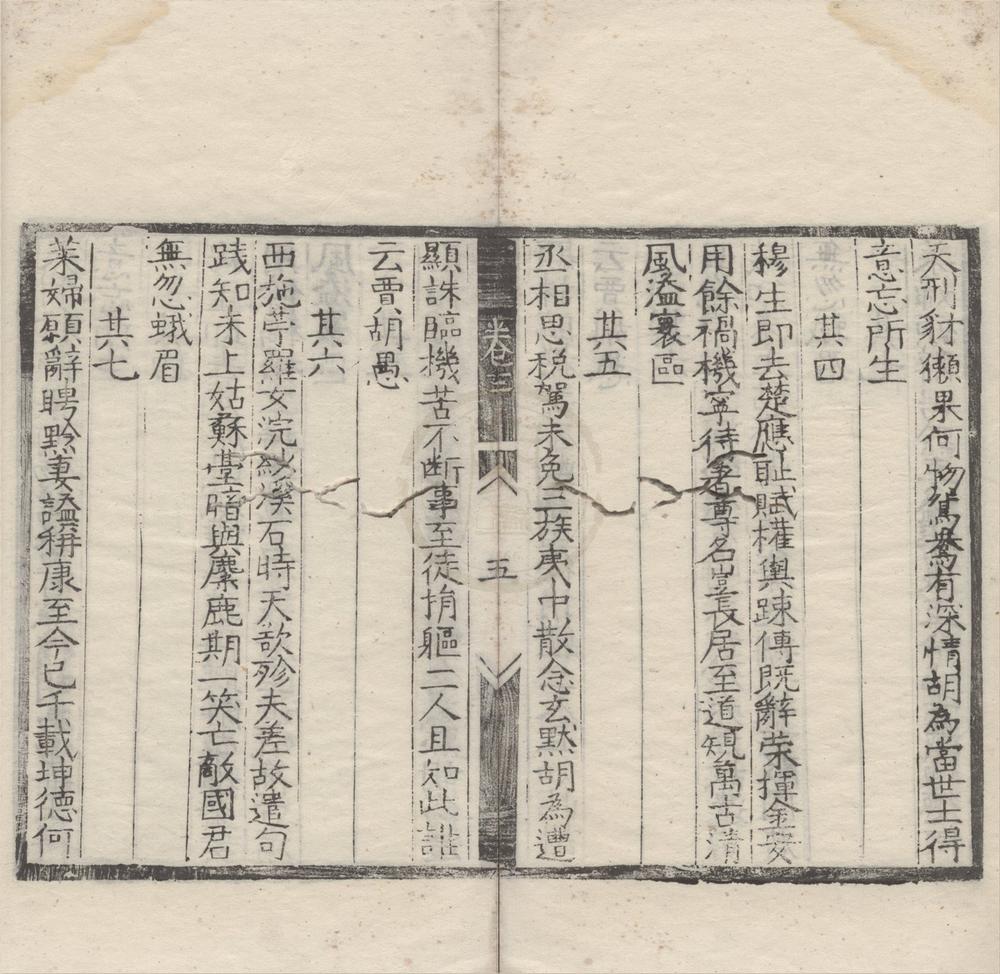 天刑豺獺果何物鴛鴦有深情胡為當世士得
意忘所生
其四
穆生即去楚應恥賦權輿踈傳既辭荣揮金安
用餘禍機寧待著尊名豈長居至道規萬古清
風溢寰區
其五
丞相思稅駕未免三族夷中散念玄默胡為遭
卷
五
顯誅臨機苦不断事至徒捐軀二人且如此誰
云賈胡愚
其六
西施苧羅女浣紗溪石時天欲殄夫差故遣句
践知未上姑蘇臺暗與麋鹿期一笑亡敵國君
無忽蛾眉
其七
萊婦願辭聘黔妻謚稱康至今已千載坤德何